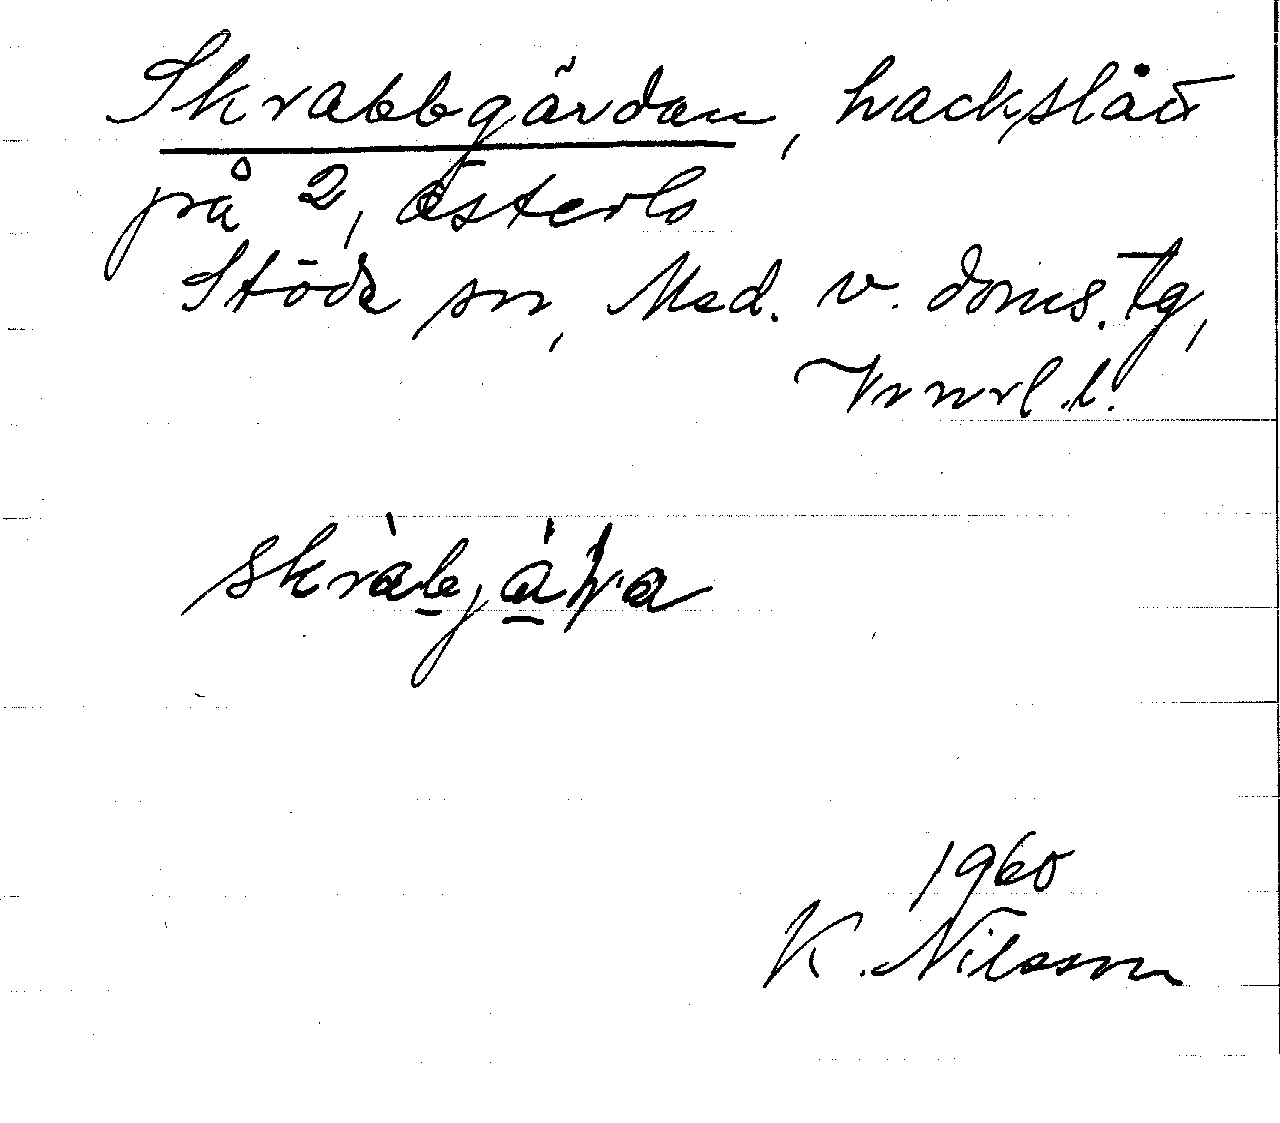 Skrabbgärdan, hackslått
på 2, Österlo
Stöde sn, Med. v. doms. tg,
Vnorl. l.
1960
K. Nilsson